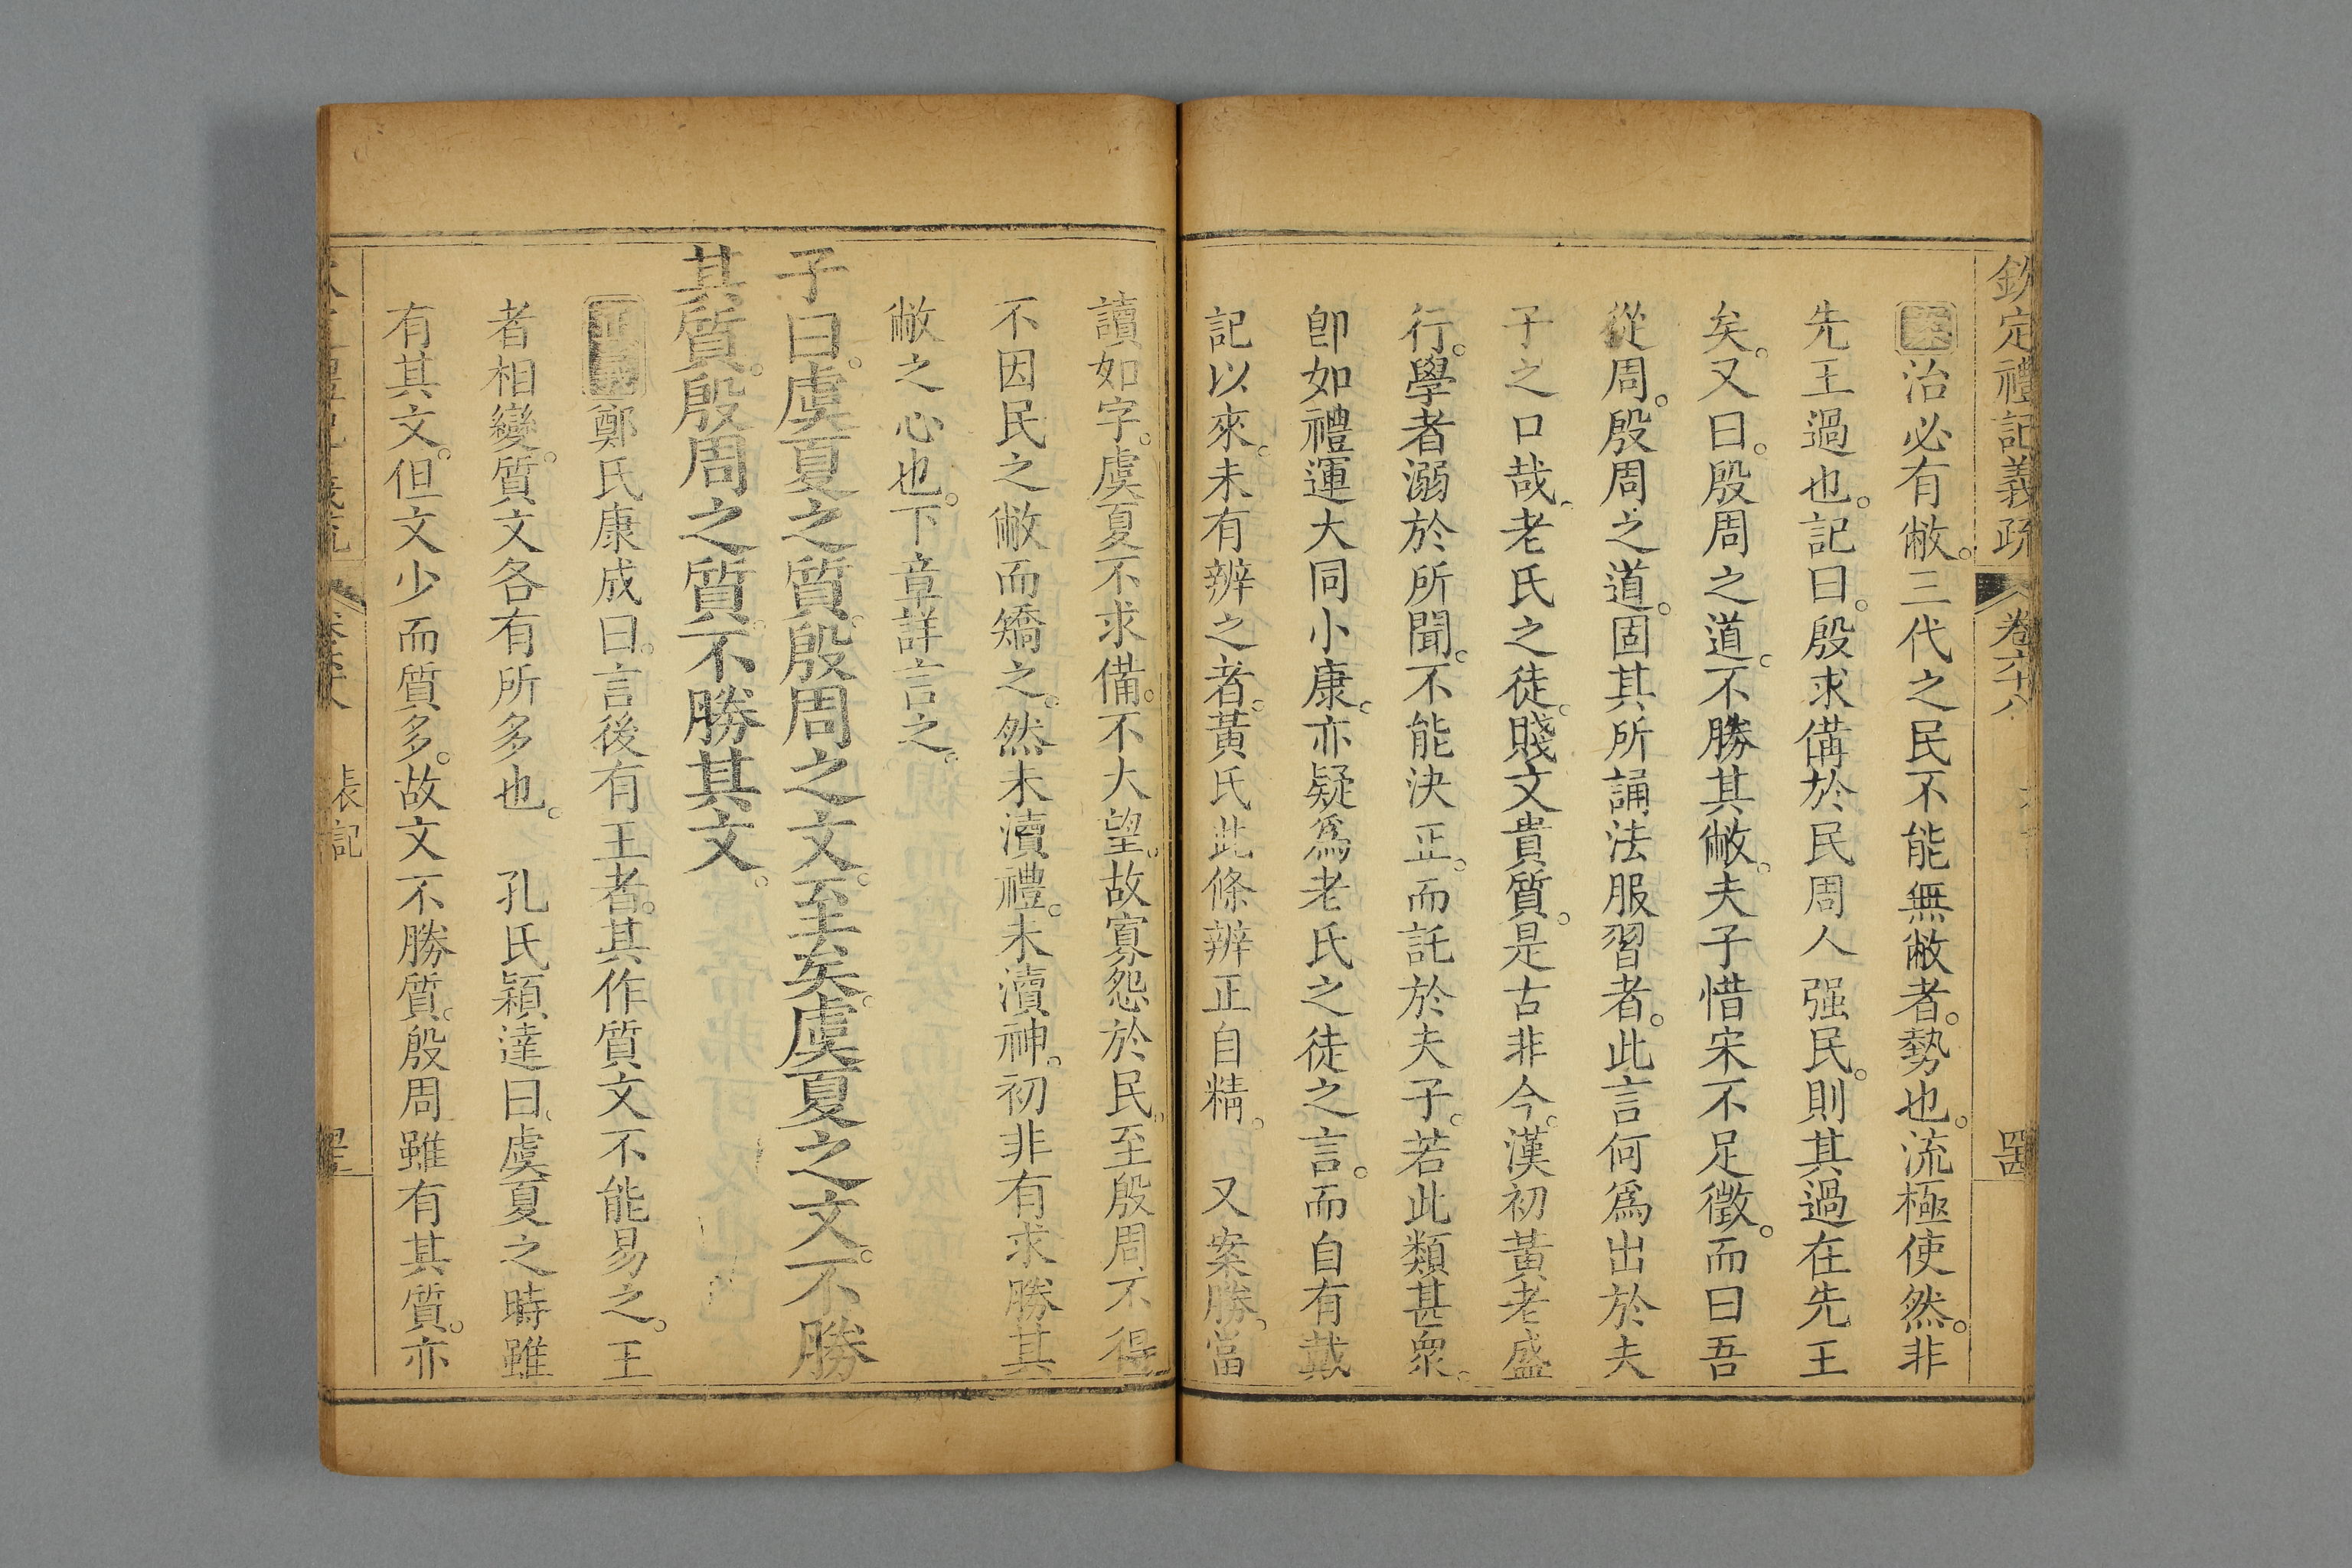 欽定禮記義疏 卷六十八
案治必有敝。三代之民不能無敝者。勢也。流極使然。非
先王過也。記曰。殷求備於民周人强民。則其過在先王
矣。又曰。殷周之道。不勝其敝。夫子惜宋不足徵。而曰吾
從周。殷周之道。固其所誦法服習者。此言何爲出於夫
子之口哉。老氏之徒。賤文貴質。是古非今。漢初黃老盛
行。學者溺於所聞。不能決正。而託於夫子。若此類甚衆。
卽如禮運大同小康。亦疑爲老氏之徒之言。而自有戴
記以來。未有辨之者。黃氏此條辨正自精。 又案勝。當
讀如字。虞夏不求備。不大望。故寡怨於民。至殷周。不得
不因民之敝而矯之。然未瀆禮。未瀆神。初非有求勝其
敝之心也。下章詳言之。
子曰。虞夏之質。殷周之文。至矣。虞夏之文。不勝
其質。殷周之質。不勝其文。
正義鄭氏康成曰。言後有王者。其作質文不能易之。王
者相變。質文各有所多也。 孔氏穎達曰。虞夏之時雖
有其文。但文少而質多。故文不勝質。殷周雖有其質。亦
表記